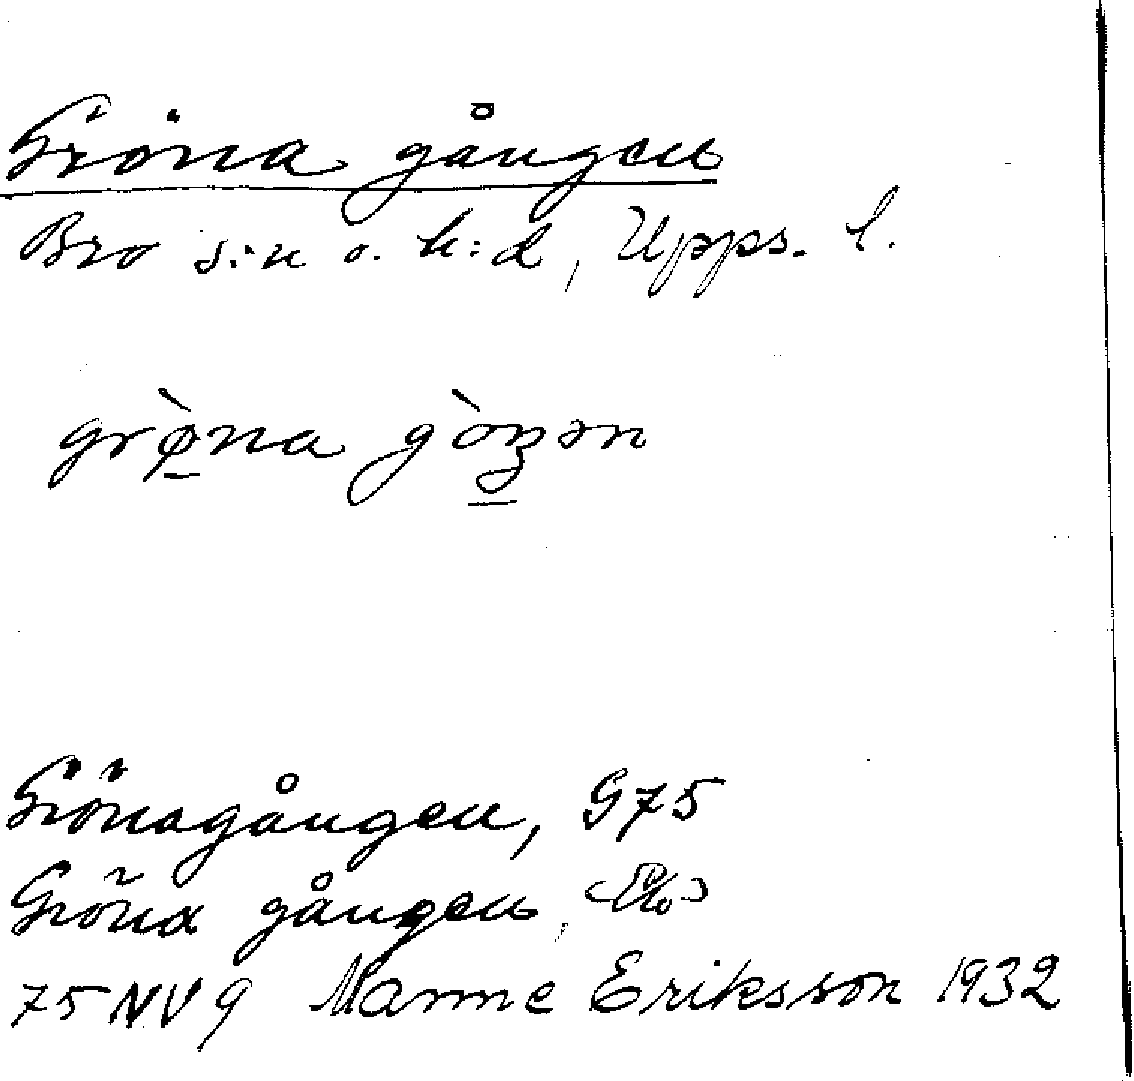 Gröna gången
Bro s:n o. h:d, Upps. l.
grø̠̀na gòŋ̠ən
Grönagången, G75
Gröna gången,
75 NV 9 Manne Eriksson 1932